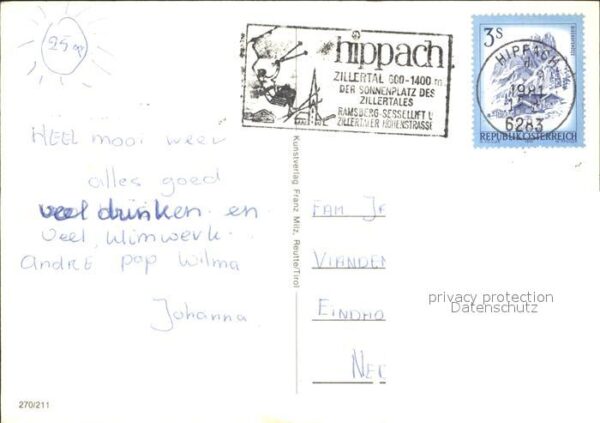 25 gr
hippach
ZILLERTAL 600-1400 m
DER SONNENPLATZ DES
ZILLERTALES
RAMSBERG-SESSELLIFT U
ZILLERTALER HÖHENSTRASSE
3S
HIPPACH
1981
6283
REPUBLIK ÖSTERREICH
HEEL mooi weer
alles goed
veel drinken en
veel klimwerk
ANDRÉ pop Wilma
Johanna
Kunstverlag Franz Milz, Reutte/Tirol
FAM J
VIANDEN
EINDHO
NED
privacy protection
Datenschutz
270/211